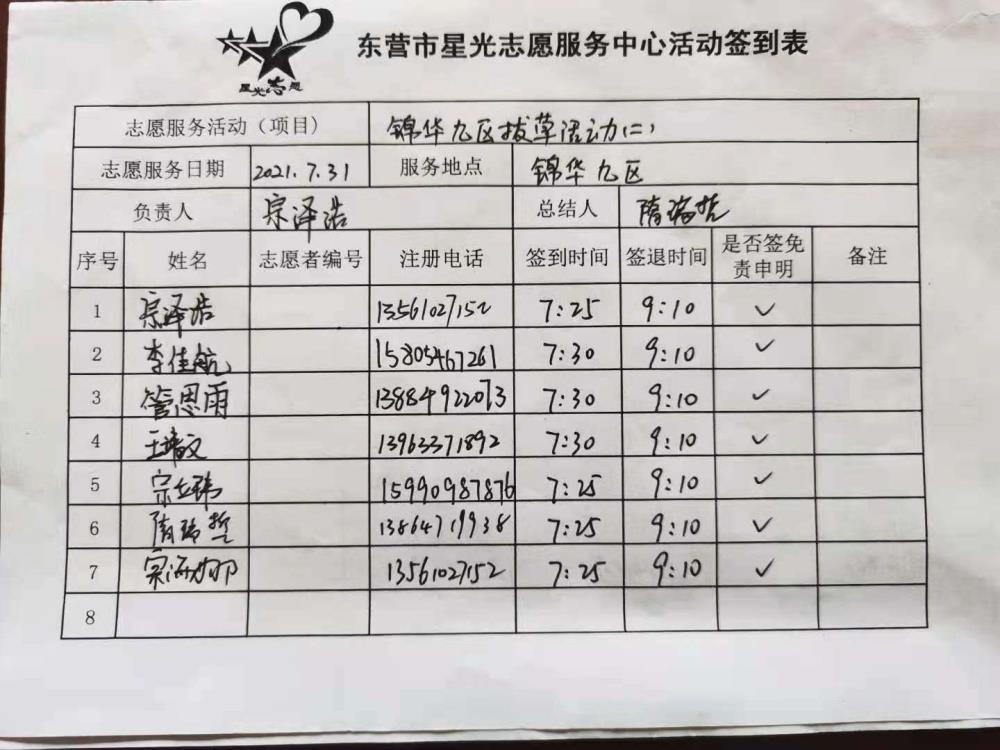 星光志愿
东营市星光志愿服务中心活动签到表
志愿服务活动（项目） 锦华九区拔草活动(二)
志愿服务日期 2021.7.31 服务地点 锦华九区
负责人 宗泽浩 总结人 隋瑞哲
序号 姓名 志愿者编号 注册电话 签到时间 签退时间 是否签免责申明 备注
1 宗泽浩 13561027152 7:25 9:10 ✓
2 李佳航 15805467261 7:30 9:10 ✓
3 管思雨 13884922073 7:30 9:10 ✓
4 王 文 13963371892 7:30 9:10 ✓
5 宗立玮 15990987876 7:25 9:10 ✓
6 隋瑞哲 13864719938 7:25 9:10 ✓
7 宗海娜 13561027152 7:25 9:10 ✓
8